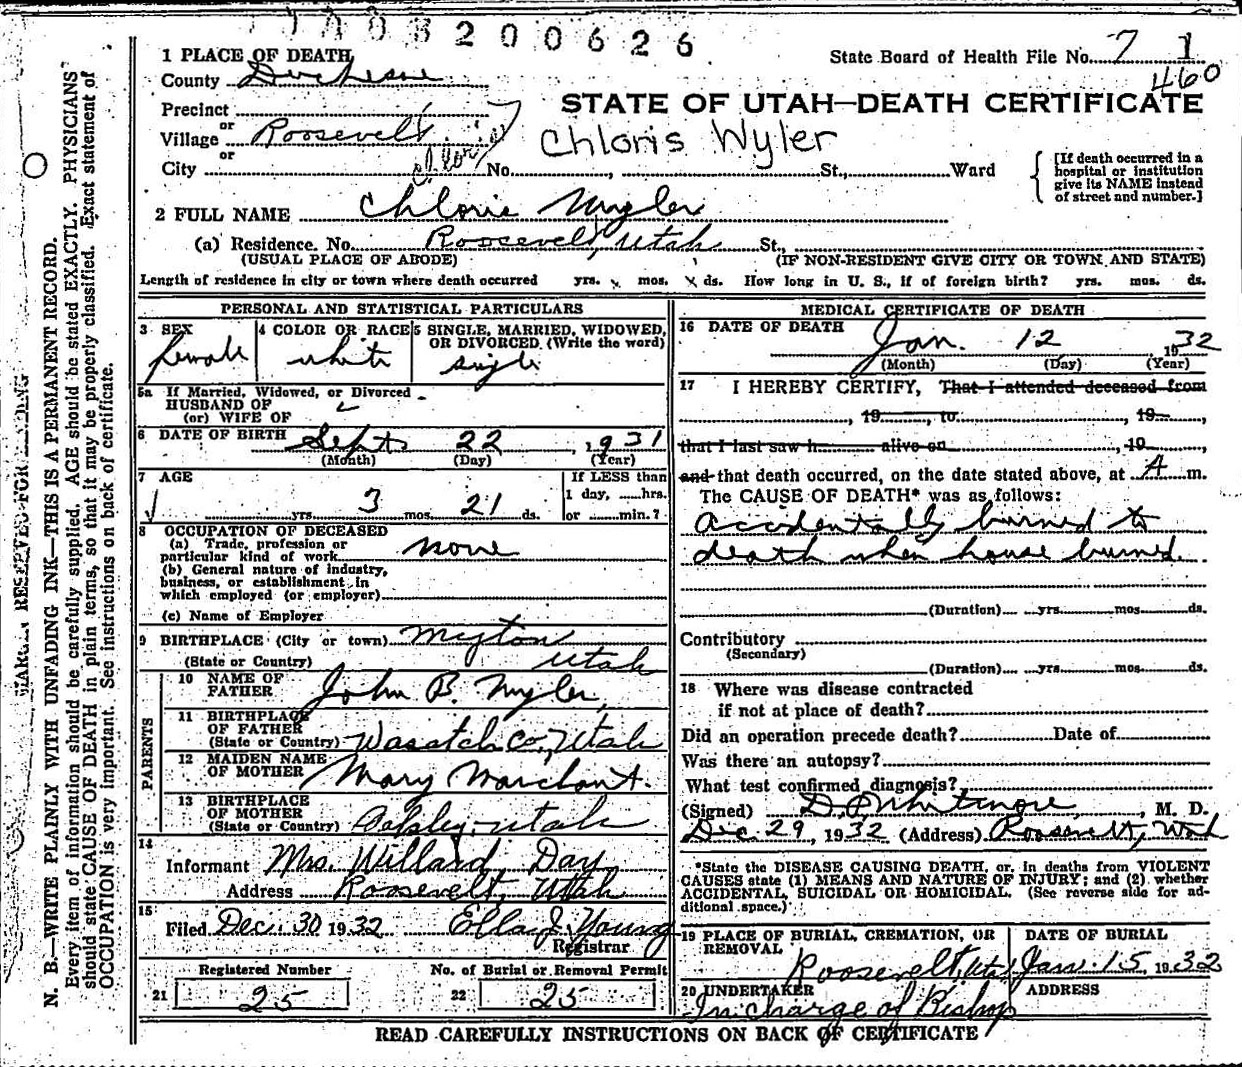 200626
State Board of Health File No. 71
460
1 PLACE OF DEATH
County Duchesne
STATE OF UTAH—DEATH CERTIFICATE
Precinct
or
Village Roosevelt
Chloris Wyler
or
City No. , St., Ward
[If death occurred in a
hospital or institution
give its NAME instead
of street and number.]
2 FULL NAME Chloris Wyler
(a) Residence. No. Roosevelt, Utah St.,
(USUAL PLACE OF ABODE) (IF NON-RESIDENT GIVE CITY OR TOWN AND STATE)
Length of residence in city or town where death occurred yrs. mos. ds. How long in U. S., if of foreign birth? yrs. mos. ds.
PERSONAL AND STATISTICAL PARTICULARS
3 SEX female
4 COLOR OR RACE white
5 SINGLE, MARRIED, WIDOWED,
OR DIVORCED. (Write the word)
single
5a If Married, Widowed, or Divorced
HUSBAND OF
(or) WIFE OF
6 DATE OF BIRTH Sept 22, 1931
(Month) (Day) (Year)
7 AGE
yrs. 3 mos. 21 ds.
If LESS than
1 day, hrs.
or min.?
8 OCCUPATION OF DECEASED
(a) Trade, profession or
particular kind of work none
(b) General nature of industry,
business, or establishment in
which employed (or employer)
(c) Name of Employer
9 BIRTHPLACE (City or town) Myton
(State or Country) Utah
PARENTS
10 NAME OF
FATHER John B. Wyler
11 BIRTHPLACE
OF FATHER
(State or Country) Wasatch Co., Utah
12 MAIDEN NAME
OF MOTHER Mary Marchant.
13 BIRTHPLACE
OF MOTHER
(State or Country) Oakley, Utah
14
Informant Mrs. Willard Day
Address Roosevelt, Utah
15
Filed Dec. 30 1932 Ella J. Young
Registrar
Registered Number
21 25
No. of Burial or Removal Permit
22 25
MEDICAL CERTIFICATE OF DEATH
16 DATE OF DEATH
Jan. 12 1932
(Month) (Day) (Year)
17 I HEREBY CERTIFY, That I attended deceased from
, 19 , to , 19 ,
that I last saw h alive on , 19
and that death occurred, on the date stated above, at A m.
The CAUSE OF DEATH* was as follows:
accidentally burned to
death when house burned.
(Duration) yrs. mos. ds.
Contributory
(Secondary)
(Duration) yrs. mos. ds.
18 Where was disease contracted
if not at place of death?
Did an operation precede death? Date of
Was there an autopsy?
What test confirmed diagnosis?
(Signed) D.P. Whitmore, M. D.
Dec. 29, 1932 (Address) Roosevelt, Utah
*State the DISEASE CAUSING DEATH, or, in deaths from VIOLENT
CAUSES state (1) MEANS AND NATURE OF INJURY; and (2) whether
ACCIDENTAL, SUICIDAL OR HOMICIDAL. (See reverse side for ad-
ditional space.)
19 PLACE OF BURIAL, CREMATION, OR
REMOVAL
Roosevelt, Utah
DATE OF BURIAL
Jan. 15, 1932
20 UNDERTAKER ADDRESS
In charge of Bishop
READ CAREFULLY INSTRUCTIONS ON BACK OF CERTIFICATE
N. B.—WRITE PLAINLY WITH UNFADING INK—THIS IS A PERMANENT RECORD.
Every item of information should be carefully supplied. AGE should be stated EXACTLY. PHYSICIANS
should state CAUSE OF DEATH in plain terms, so that it may be properly classified. Exact statement of
OCCUPATION is very important. See instructions on back of certificate.